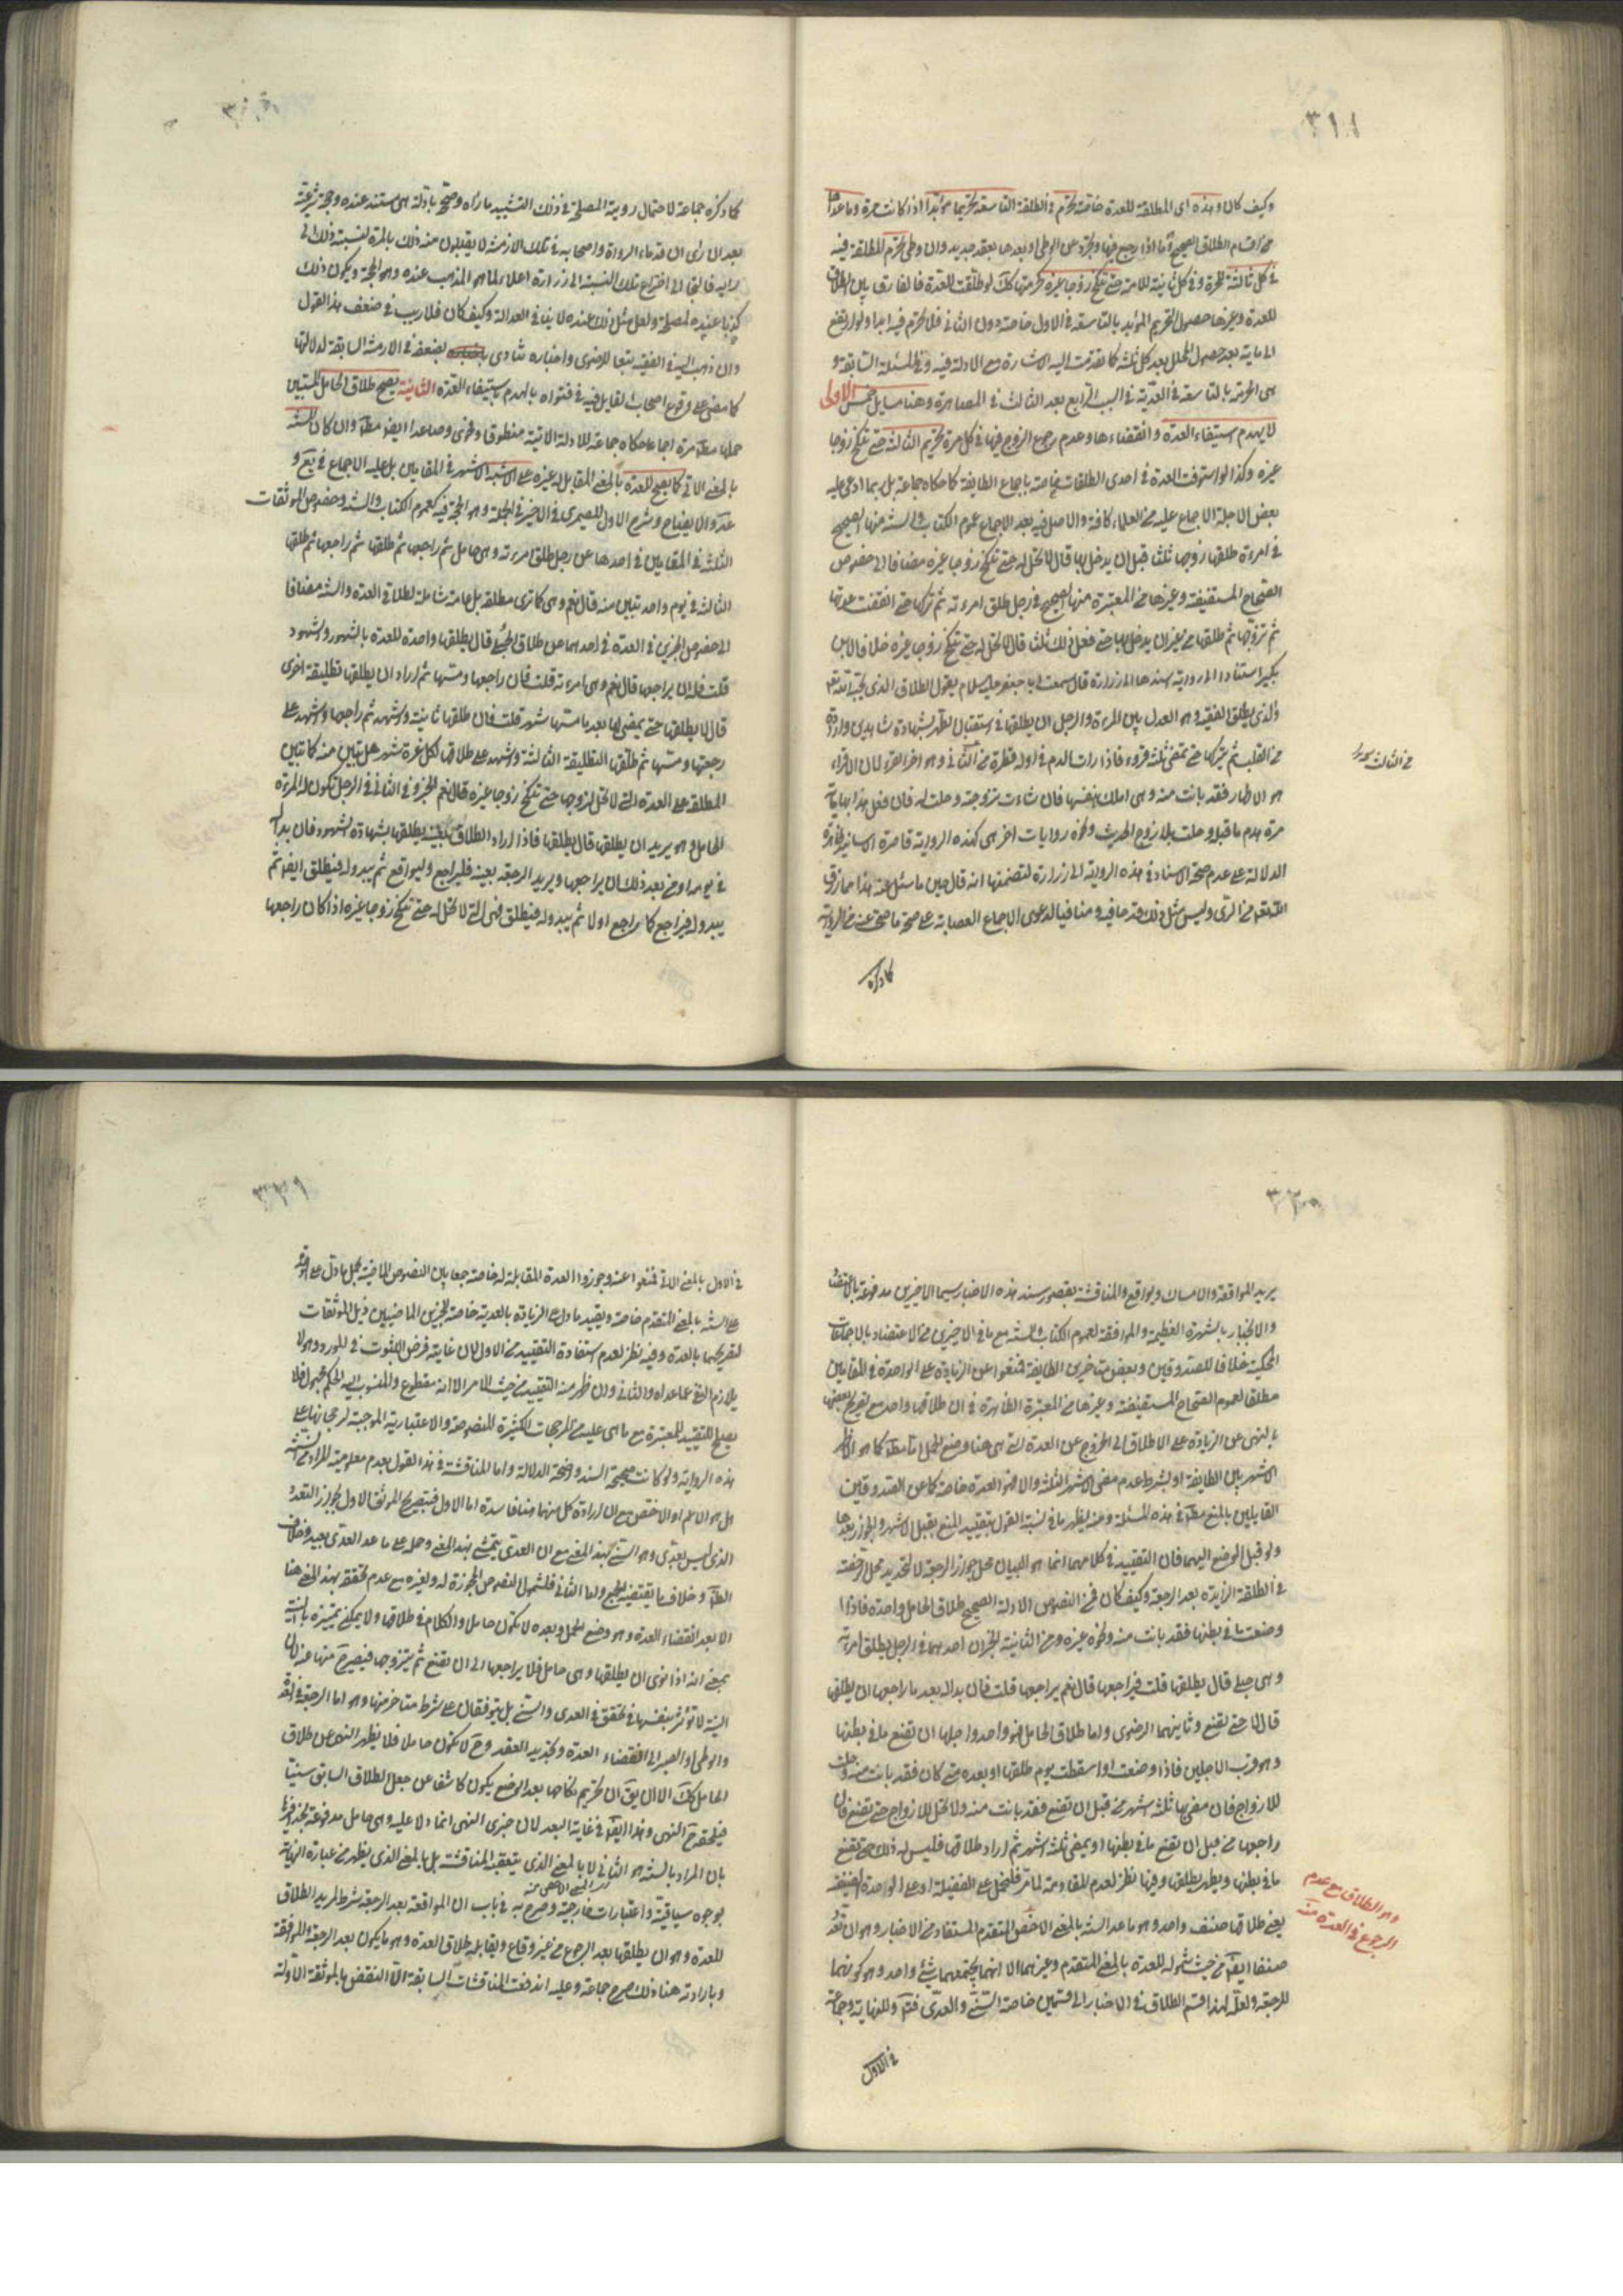 ٣١١
وكيف كان وهذه اى المطلقة للعدة خاصة تحرم فى الطلقة التاسعة تحريما مؤبدا اذا كانت حرة وما عداها
من اقسام الطلاق الصحيح مما اذا رجع فيها وتجرد عن الوطى او بعدها بعقد جديد وان وطى تحرم المطلقة فيه
فى كل ثالثة للحرة وفى كل ثانية للامة حتى تنكح زوجا غيره كحرمتها كك لو طلقت للعدة فالفارق بين الطلاق
للعدة وغيرها حصول التحريم المؤبد بالتاسعة فى الاول خاصة دون الثانى فلا تحرم فيه ابدا ولو ارتفع
الى ماية بعد حصول المحلل بعد كل ثلثة كما تقدمت اليه الاشارة مع الادلة فيه وفى المسئلة السابقة و
هى الحرمة بالتاسعة فى العدية فى السبب الرابع بعد الثالث فى المصاهرة وهنا مسايل خمس الاولى
لا يهدم استيفاء العدة وانقضاءها وعدم رجوع الزوج فيها فى كل مرة تحريم الثالثة حتى تنكح زوجا
غيره وكذا لو استوفت العدة فى احدى الطلقات خاصة باجماع الطايفة كما حكاه جماعة بل ربما ادعى عليه
بعض الاجلة الاجماع عليه من العلماء كافة والاصل فيه بعد الاجماع عموم الكتاب والسنة منها الصحيح
فى امرءة طلقها زوجها ثلثا قبل ان يدخل بها قال لا تحل له حتى تنكح زوجا غيره مضافا الى خصوص
الصحاح المستفيضة وغيرها من المعتبرة منها الصحيح فى رجل طلق امرءته ثم تركها حتى انقضت عدتها
ثم تزوجها ثم طلقها من غير ان يدخل بها حتى فعل ذلك ثلثا قال لا تحل له حتى تنكح زوجا غيره خلافا لابن
بكير استنادا الى رواية اسندها الى زرارة قال سمعت ابا جعفر عليه السلام يقول الطلاق الذى يحبه الله تعالى
والذى يطلق الفقيه وهو العدل بين المرءة والرجل ان يطلقها فى استقبال الطهر بشهادة شاهدين وارادة
من القلب ثم يتركها حتى تمضى ثلثة قروء فاذا رات الدم فى اول قطرة من الثالث وهو اخر القرء لان الاقراء
هو الاطهار فقد بانت منه وهى املك بنفسها فان شاءت تزوجته وحلت له فان فعل هذا بها ماية
مرة هدم ما قبله وحلت بلا زوج الحديث ونحوه روايات اخرى كهذه الرواية قاصرة الاسانيد ظاهرة
الدلالة على عدم صحة الاسناد فى هذه الرواية الى زرارة لتضمنها انه قال حين ما سئل عنه هذا مما رزق
الله تعالى من الراى وليس مثل ذلك قدحا فيه ومنافيا لدعوى الاجماع العصابة على صحة ما صح عنه من الرواية
كما ذكره
كما ذكره جماعة لاحتمال روية المصلحة فى ذلك التشييد ما رآه وصح بادلة هى مستند عنده وحجة شرعية
بعد ان راى ان قدماء الرواة واصحابه فى تلك الازمنة لا يقبلون منه ذلك بالمرة لنسبة ذلك الى
رايه فالتجا الى اختراع تلك النسبة الى زرارة اعلاء لما هو المذهب عنده وهو الحجة ويكون ذلك
كذبا عنده لمصلحة ولعل مثل ذلك عنده لا ينافى العدالة وكيف كان فلا ريب فى ضعف هذا القول
وان ذهب اليه فى الفقيه تبعا للرضوى واخباره تنادى بضعفه فى الازمنة السابقة لدلالتها
كما مضى على وقوع اصحاب القايل فيه فى فتواه بالهدم باستيفاء العدة الثانية يصح طلاق الحامل المستبين
حملها مطلقا مرة اجماعا حكاه جماعة للادلة الاتية منطوقا وفحوى وصاعدا ايضا مطلقا وان كان للسنة
بالمعنى الاتى كما يصح للعدة بالمعنى المقابل له غيره على الاشبه الاشهر فى المقامين بل عليه الاجماع فى يع و
عد والايضاح وشرح الاول للصيمرى فى الاخير فى الجملة وهو الحجة فيه كعموم الكتاب والسنة وخصوص الموثقات
الثلثة فى المقامين فى احدها عن رجل طلق امرءته وهى حامل ثم راجعها ثم طلقها ثم راجعها ثم طلقها
الثالثة فى يوم واحد تبين منه قال نعم وهى كما ترى مطلقة بل عامة شاملة لطلاقى العدة والسنة مضافا
الى خصوص الخبرين فى العدة فى احدهما عن طلاق الحبلى قال يطلقها واحدة للعدة بالشهور والشهود
قلت فله ان يراجعها قال نعم وهى امرءته قلت فان راجعها ومسها ثم اراد ان يطلقها تطليقة اخرى
قال لا يطلقها حتى يمضى لها بعد ما مسها شهر قلت فان طلقها ثانية واشهد ثم راجعها واشهد على
رجعتها ومسها ثم طلقها التطليقة الثالثة واشهد على طلاقها لكل غرة شهر هل تبين منه كما تبين
المطلقة على العدة التى لا تحل لزوجها حتى تنكح زوجا غيره قال نعم الخبر وفى الثانى فى الرجل تكون له المرءة
الحامل وهو يريد ان يطلقها قال يطلقها فاذا اراد الطلاق بعينه يطلقها بشهادة الشهود فان بدا له
فى يومه او من بعد ذلك ان يراجعها ويريد الرجعة بعينه فليراجع وليواقع ثم يبدو له فيطلق ايضا ثم
يبدو له فيراجع كما راجع اولا ثم يبدو له فيطلق فهى التى لا تحل له حتى تنكح زوجا غيره اذا كان راجعها
٣٢٠
يريد المواقعة والامساك ويواقع والمناقشة بقصور سند هذه الاخبار سيما الاخيرين مدفوعة بالاعتضاد
والانجبار بالشهرة العظيمة والموافقة لعموم الكتاب والسنة مع ما فى الاخيرين من الاعتضاد بالاجماعات
المحكية خلافا للصدوقين وبعض متاخرى الطايفة فمنعوا عن الزيادة على الواحدة فى المقامين
مطلقا لعموم الصحاح المستفيضة وغيرها من المعتبرة الظاهرة فى ان طلاقها واحد مع تصريح بعضها
بالنهى عن الزيادة على الاطلاق الى الخروج عن العدة التى هى هنا وضع الحمل اما مطلقا كما هو الاظهر
الاشهر بين الطايفة او بشرط عدم مضى الاشهر الثلثة والا فهو العدة خاصة كما عن الصدوقين
القايلين بالمنع مطلقا فى هذه المسئلة ومنه يظهر ما فى نسبة القول بتقييد المنع بقبل الاشهر والجواز بعدها
ولو قبل الوضع اليهما فان التقييد فى كلامهما انما هو لبيان محل جواز الرجعة لا لتحديد محل الرخصة
فى الطلقة الزايدة بعد الرجعة وكيف كان فمن النصوص الادلة الصحيح طلاق الحامل واحدة فاذا
وضعت ما فى بطنها فقد بانت منه ونحوه غيره ومن الثانية الخبران احدهما فى الرجل يطلق امرءته
وهى حبلى قال يطلقها قلت فيراجعها قال نعم يراجعها قلت فان بدا له بعد ما راجعها ان يطلقها
قال لا حتى تضع وثانيهما الرضوى واما طلاق الحامل فهو واحد واجلها ان تضع ما فى بطنها
وهو اقرب الاجلين فاذا وضعت او اسقطت يوم طلقها او بعده متى كان فقد بانت منه وحلت
للازواج فان مضى بها ثلثة اشهر من قبل ان تضع فقد بانت منه ولا تحل للازواج حتى تضع فان
راجعها من قبل ان تضع ما فى بطنها او يمضى ثلثة اشهر ثم اراد طلاقها فليس له ذلك حتى تضع
ما فى بطنها وتطهر يطلقها وفيها نظر لعدم المقاومة لما مر فلتحمل على الفضيلة او على الواحدة الصنفية
يعنى طلاقها صنف واحد وهو ما عدا السنة بالمعنى الاخص المتقدم المستفاد من الاخبار وهو ان تعدد
صنفا ايضا من حيث شموله للعدة بالمعنى المتقدم وغيرهما الا انهما يجمعهما شئ واحد وهو كونهما
للرجعة ولعله لهذا قسم الطلاق فى الاخبار الى قسمين خاصة السنى والعدى فتم وللنهاية وجماعة
وهو الطلاق مع عدم
الرجوع فى العدة منه
فى الاول
٣٢١
فى الاول بالمعنى الاتى فمنعوا عنه وجوزوا العدة المقابلة له خاصة جمعا بين النصوص الماضية بحمل ما دل على الواحدة
على السنة بالمعنى المتقدم خاصة وتقييد ما دل على الزيادة بالعدية خاصة للخبرين الماضيين ذيل الموثقات
لتصريحهما بالعدة وفيه نظر لعدم استفادة التقييد من الاول لان غايته فرض الثبوت فى المورد وهو لا
يلازم النفى عما عداه والثانى وان ظهر منه التقييد من حيث الامر الا انه مقطوع والمنسوب اليه الحكم مجهول فلا
يصلح لتقييد المعتبرة مع ما هى عليه من المرجحات الكثيرة المنصوصة والاعتبارية الموجبة لرجحانها على
هذه الرواية ولو كانت صحيحة السند واضحة الدلالة واما المناقشة فى هذا القول بعدم معلومية المراد من السنة
هل هو الاعم او الاخص مع ان ارادة كل منهما هنا فاسدة اما الاول فبتصريح الموثق الاول بجواز التعدد
الذى ليس بعدى وهو السنى بهذا المعنى مع ان العدى يتمشى بهذا المعنى وحمله على ما عدا العدى بعيد وخلاف
الظاهر وخلاف ما يقتضيه الجمع واما الثانى فلشمول النصوص المجوزة له ولغيره مع عدم تحققه بهذا المعنى هنا
الا بعد انقضاء العدة وهو وضع الحمل وبعده لا تكون حاملا والكلام فى طلاقها ولا يمكن تميزه بالنية
بمعنى انه اذا نوى ان يطلقها وهى حامل فلا يراجعها الى ان تضع ثم يتزوجها فيصير ح منها عنه لان
النية لا تؤثر بنفسها فى تحقق فى العدى والسنى بل يتوقفان على شرط متاخر منها وهو اما الرجعة فى العدة
والوطى او الصبر الى انقضاء العدة وتجديد العقد وح لا تكون حاملا فلا يظهر النهى عن طلاق
الحامل كك الا ان يقال ان تحريم نكاحها بعد الوضع يكون كاشفا عن جعل الطلاق السابق سنيا
فيلحقه ح النهى وهذا ايضا فى غاية البعد لان خبرى النهى انما دلا عليه وهى حامل مدفوعة بجذافيرها
بان المراد بالسنة هو الثانى لا بالمعنى الذى يتعقبه المناقشة بل بالمعنى الذى يظهر من عبارة النهاية
بوجوه سياقية واعتبارات خارجية وصرح به فى باب ان المواقعة بعد الرجعة شرط لمريد الطلاق
للعدة وهو ان يطلقها بعد الرجوع من غير وقاع ويقابله طلاق العدة وهو ما يكون بعد الرجعة والمواقعة
وبارادته هنا ذلك صرح جماعة وعليه اندفعت المناقشات السابقة الا النقض بالموثقة الاولة